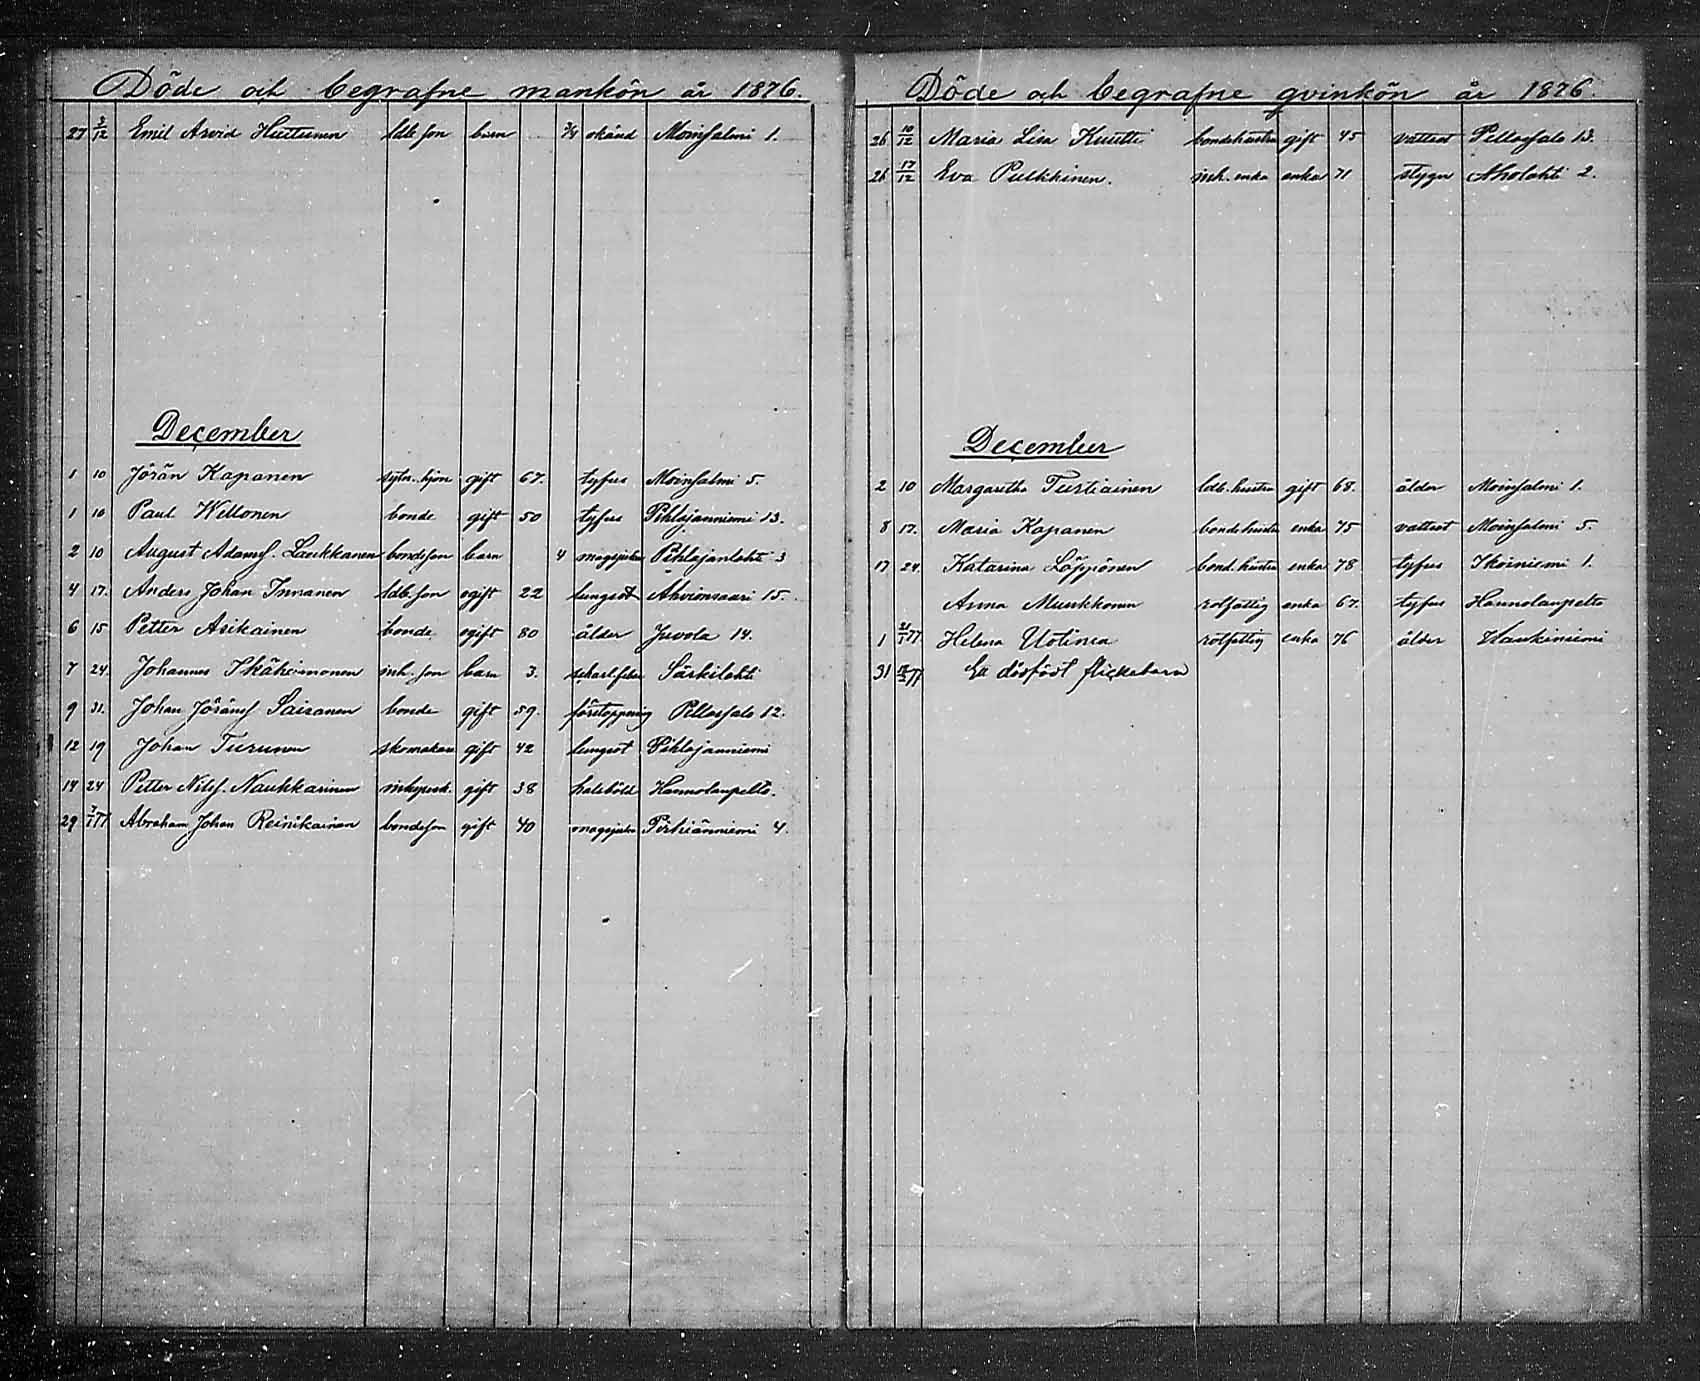 Döde och begrafne mankön år 1876.
27 3/12 Emil Arvid Huttunen ldb. son barn 3/4 okänd Moinsalmi 1.
December
1 10 Jöran Kapanen sytn. hjon gift 67. tyfus Moinsalmi 5.
1 10 Paul Kellonen bonde gift 50 tyfus Pihlajanniemi 13.
2 10 August Adamss. Laukkanen bondeson barn 4 magsjukan Pihlajanlahti 3
4 17. Anders Johan Innanen ldb. son ogift 22 lungsot Ahvionsaari 15.
6 15 Petter Asikainen bonde ogift 80 ålder Juvola 14.
7 24. Johannes Ikäheimonen inh. son barn 3. scharl.feber Särkilahti
9 31. Johan Jöranss Saisanen bonde gift 59. förstoppning Pellossalo 12.
12 19 Johan Turunen skomakare gift 42 lungsot Pihlajanniemi
14 24 Petter Nilss. Naukkarinen inhysesk. gift 38 halsböld Hannolanpelto.
29 7/1 77 Abraham Johan Reinikainen bondeson gift 40 magsjukn Pirhiänniemi 4.
Döde och begrafne qvinkön år 1876.
26 10/12 Maria Lisa Kuutti bondehustru gift 45 vattsot Pellossalo 13.
26 17/12 Eva Pulkkinen. inh. enka enka 71 stygn Aholahti 2.
December
2 10 Margaretha Turtiainen ldb. hustru gift 68. ålder Moinsalmi 1.
8 17. Maria Kapanen bondehustru enka 75 vattsot Moinsalmi 5.
17 24. Katarina Löppönen bond. hustru enka 78 tyfus Ikoiniemi 1.
Anna Munkkonen rotfattig enka 67. tyfus Hannolanpelto
1 21/1 77 Helena Uotinen rotfattig enka 76 ålder Haukiniemi
31 18/2 77 Ett dödfödt flickebarn